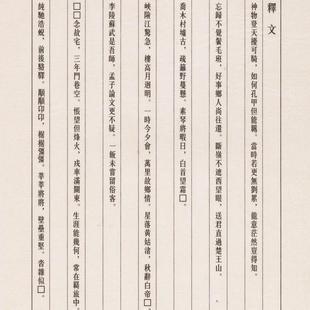 釋文
神物登天擾可騎，如何孔甲但能羈。當時若更無劉累，龍意茫然豈得知。
忘歸不覺鬢毛斑，好事鄉人尚往還。斷嶺不遮西望眼，送君直過楚王山。
喬木村墟古，疏籬野蔓懸。素琴將暇日，白首望霜□。
峽險江驚急，樓高月迥明。一時今夕會，萬里故鄉情。星落黃姑渚，秋辭白帝□。
李陵蘇武是吾師，孟子論文更不疑。一飯未嘗留俗客。
□□念故宅，三年門巷空。悵望但烽火，戎車滿關東。生涯能幾何，常在羈旅中。
純馳浩蜺，前後駱驛。顒顒卬卬，椐椐彊彊。莘莘將將，壁壘重堅。沓雜似□。